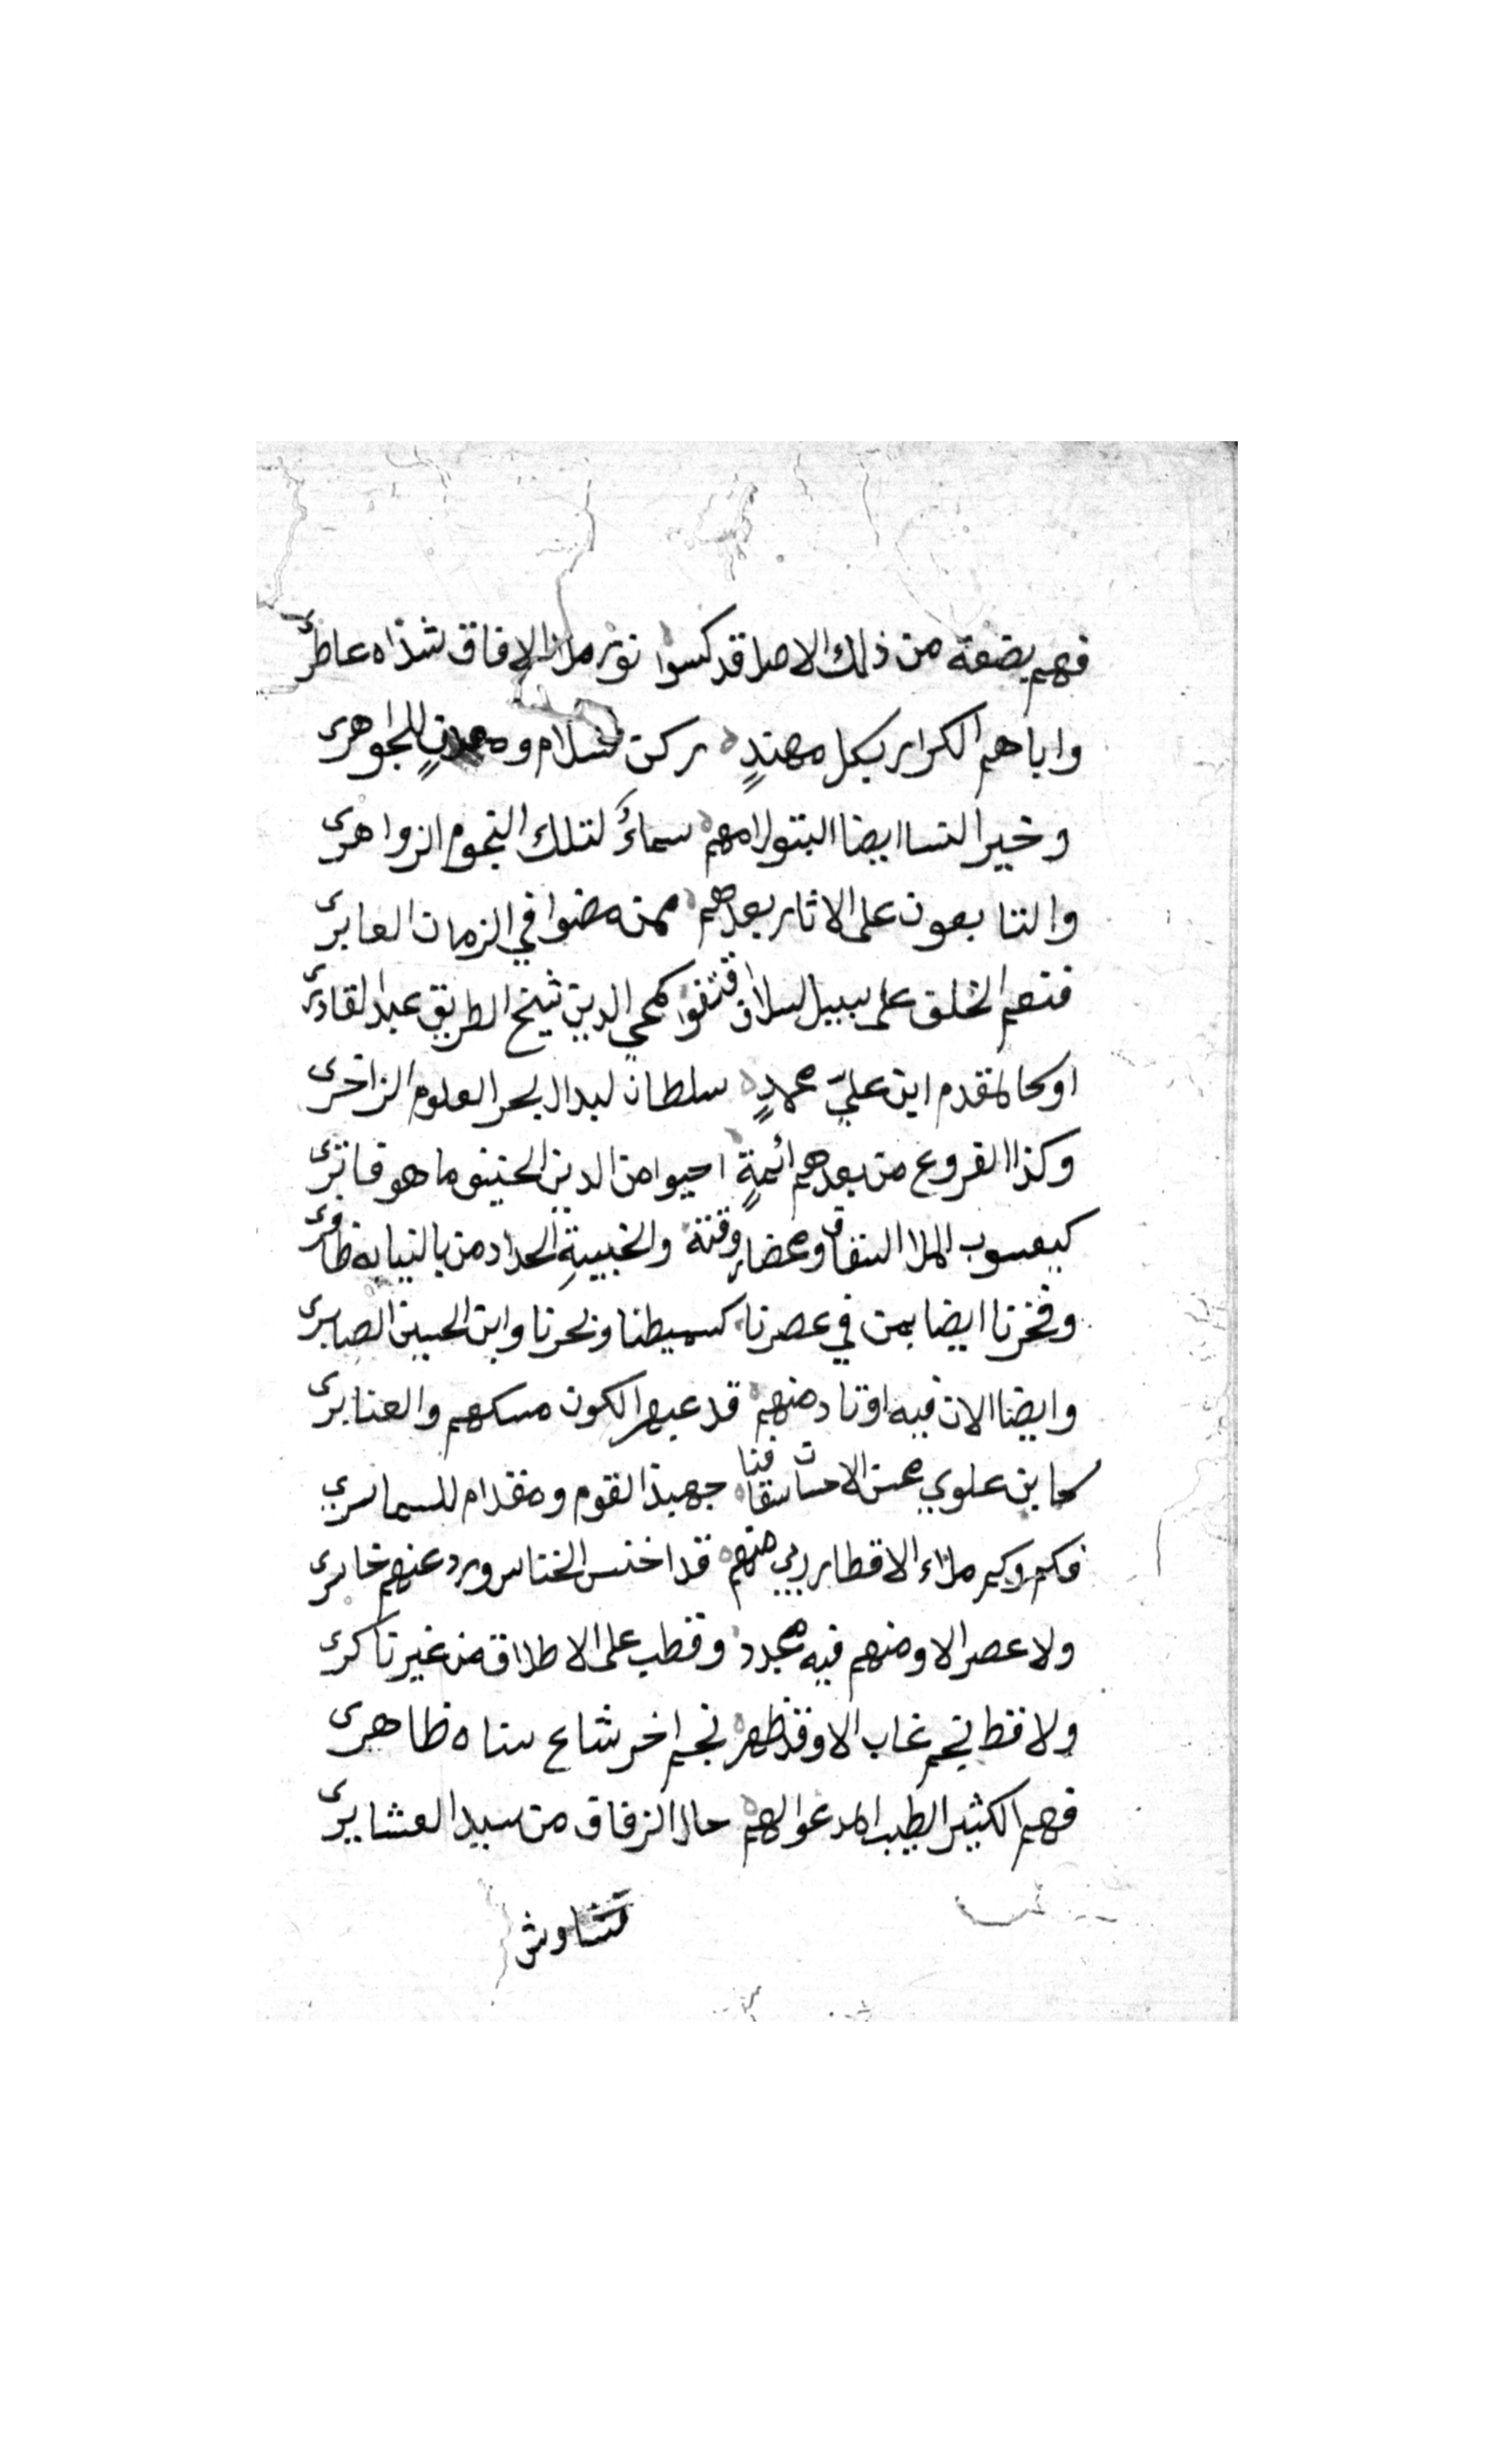 فهم بضعة من ذلك الاصل قد كسوا نور ملا الافاق شذاه عاطرى
واباهم الكرار بكل مهندٍ ركن لسلام ومعدنٍ للجوهرى
وخير النسا ايضا البتول امهم سماءُ لتلك النجوم الزواهرى
والتابعون على الاثار بعدهم ممن مضوا في الزمان الغابرى
فنعم الخلف على سبيل السلاف قتفوا كمحي الدين شيخ الطريق عبد القادرى
او كالمقدم ابن عليّ محمدٍ سلطان لبدال بحر العلوم الزاخرى
وكذا الفروع من بعدهم ائمةٍ احيوا من الدين الحنيف ما هو فاترى
كيعسوب الملا السقاف ومحضار وقته والخبيبةِ الحداد من بالنيابه ظافرى
وفخرنا ايضا بمن في عصرنا كسميطنا وبحرنا وابن الحسين الصابرى
وايضا الان فيه اوتاد منهم قد عبهر الكون مسكهم والعنابرى
كابن علوي محسن الاحسان سقافنا جهبذ القوم ومقدام للسماسري
فكم وكم ملاء الاقطار منهم قد اخنس الخناس ورد عنهم خاسرى
ولا عصر الا ومنهم فيه مجدد وقطب على الاطلاق من غير ناكرى
ولا قط نجم غاب الا وقد ظهر نجم اخر شاع سناه ظاهرى
فهم الكثير الطيب المدعوا لهم حال الزفاف من سيد العشايرى
تشاوش